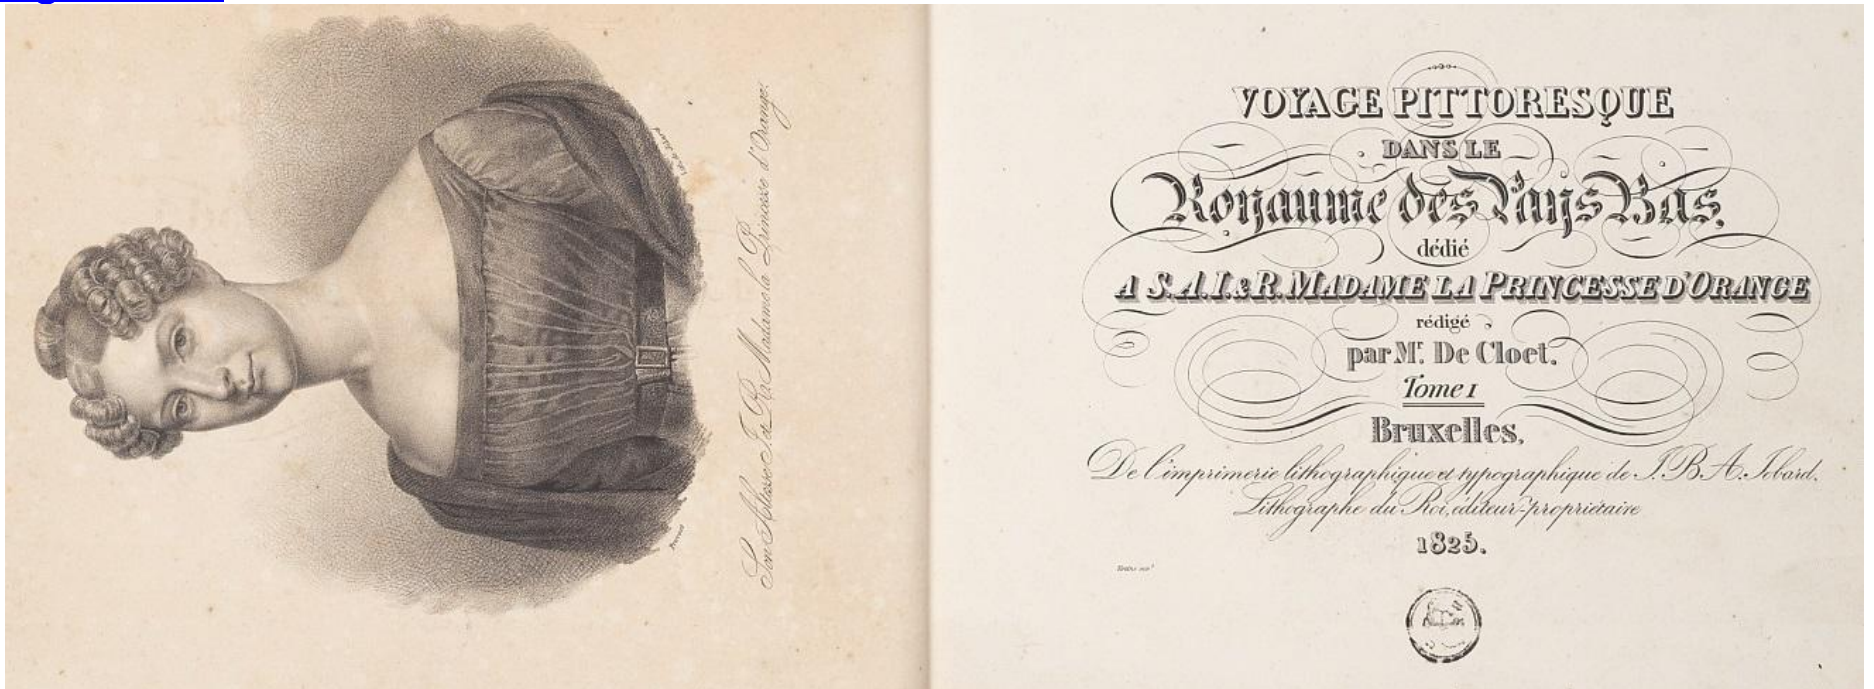 Son Altesse I. & R. Madame la Princesse d'Orange.
Lith. de Jobard
VOYAGE PITTORESQUE
DANS LE
Royaume des Pays Bas,
dédié
A S.A.I.&R. MADAME LA PRINCESSE D'ORANGE
rédigé
par Mr. De Cloet.
Tome I
Bruxelles,
De l'imprimerie lithographique et typographique de J. B. A. Jobard.
Lithographe du Roi, éditeur-propriétaire
1825.